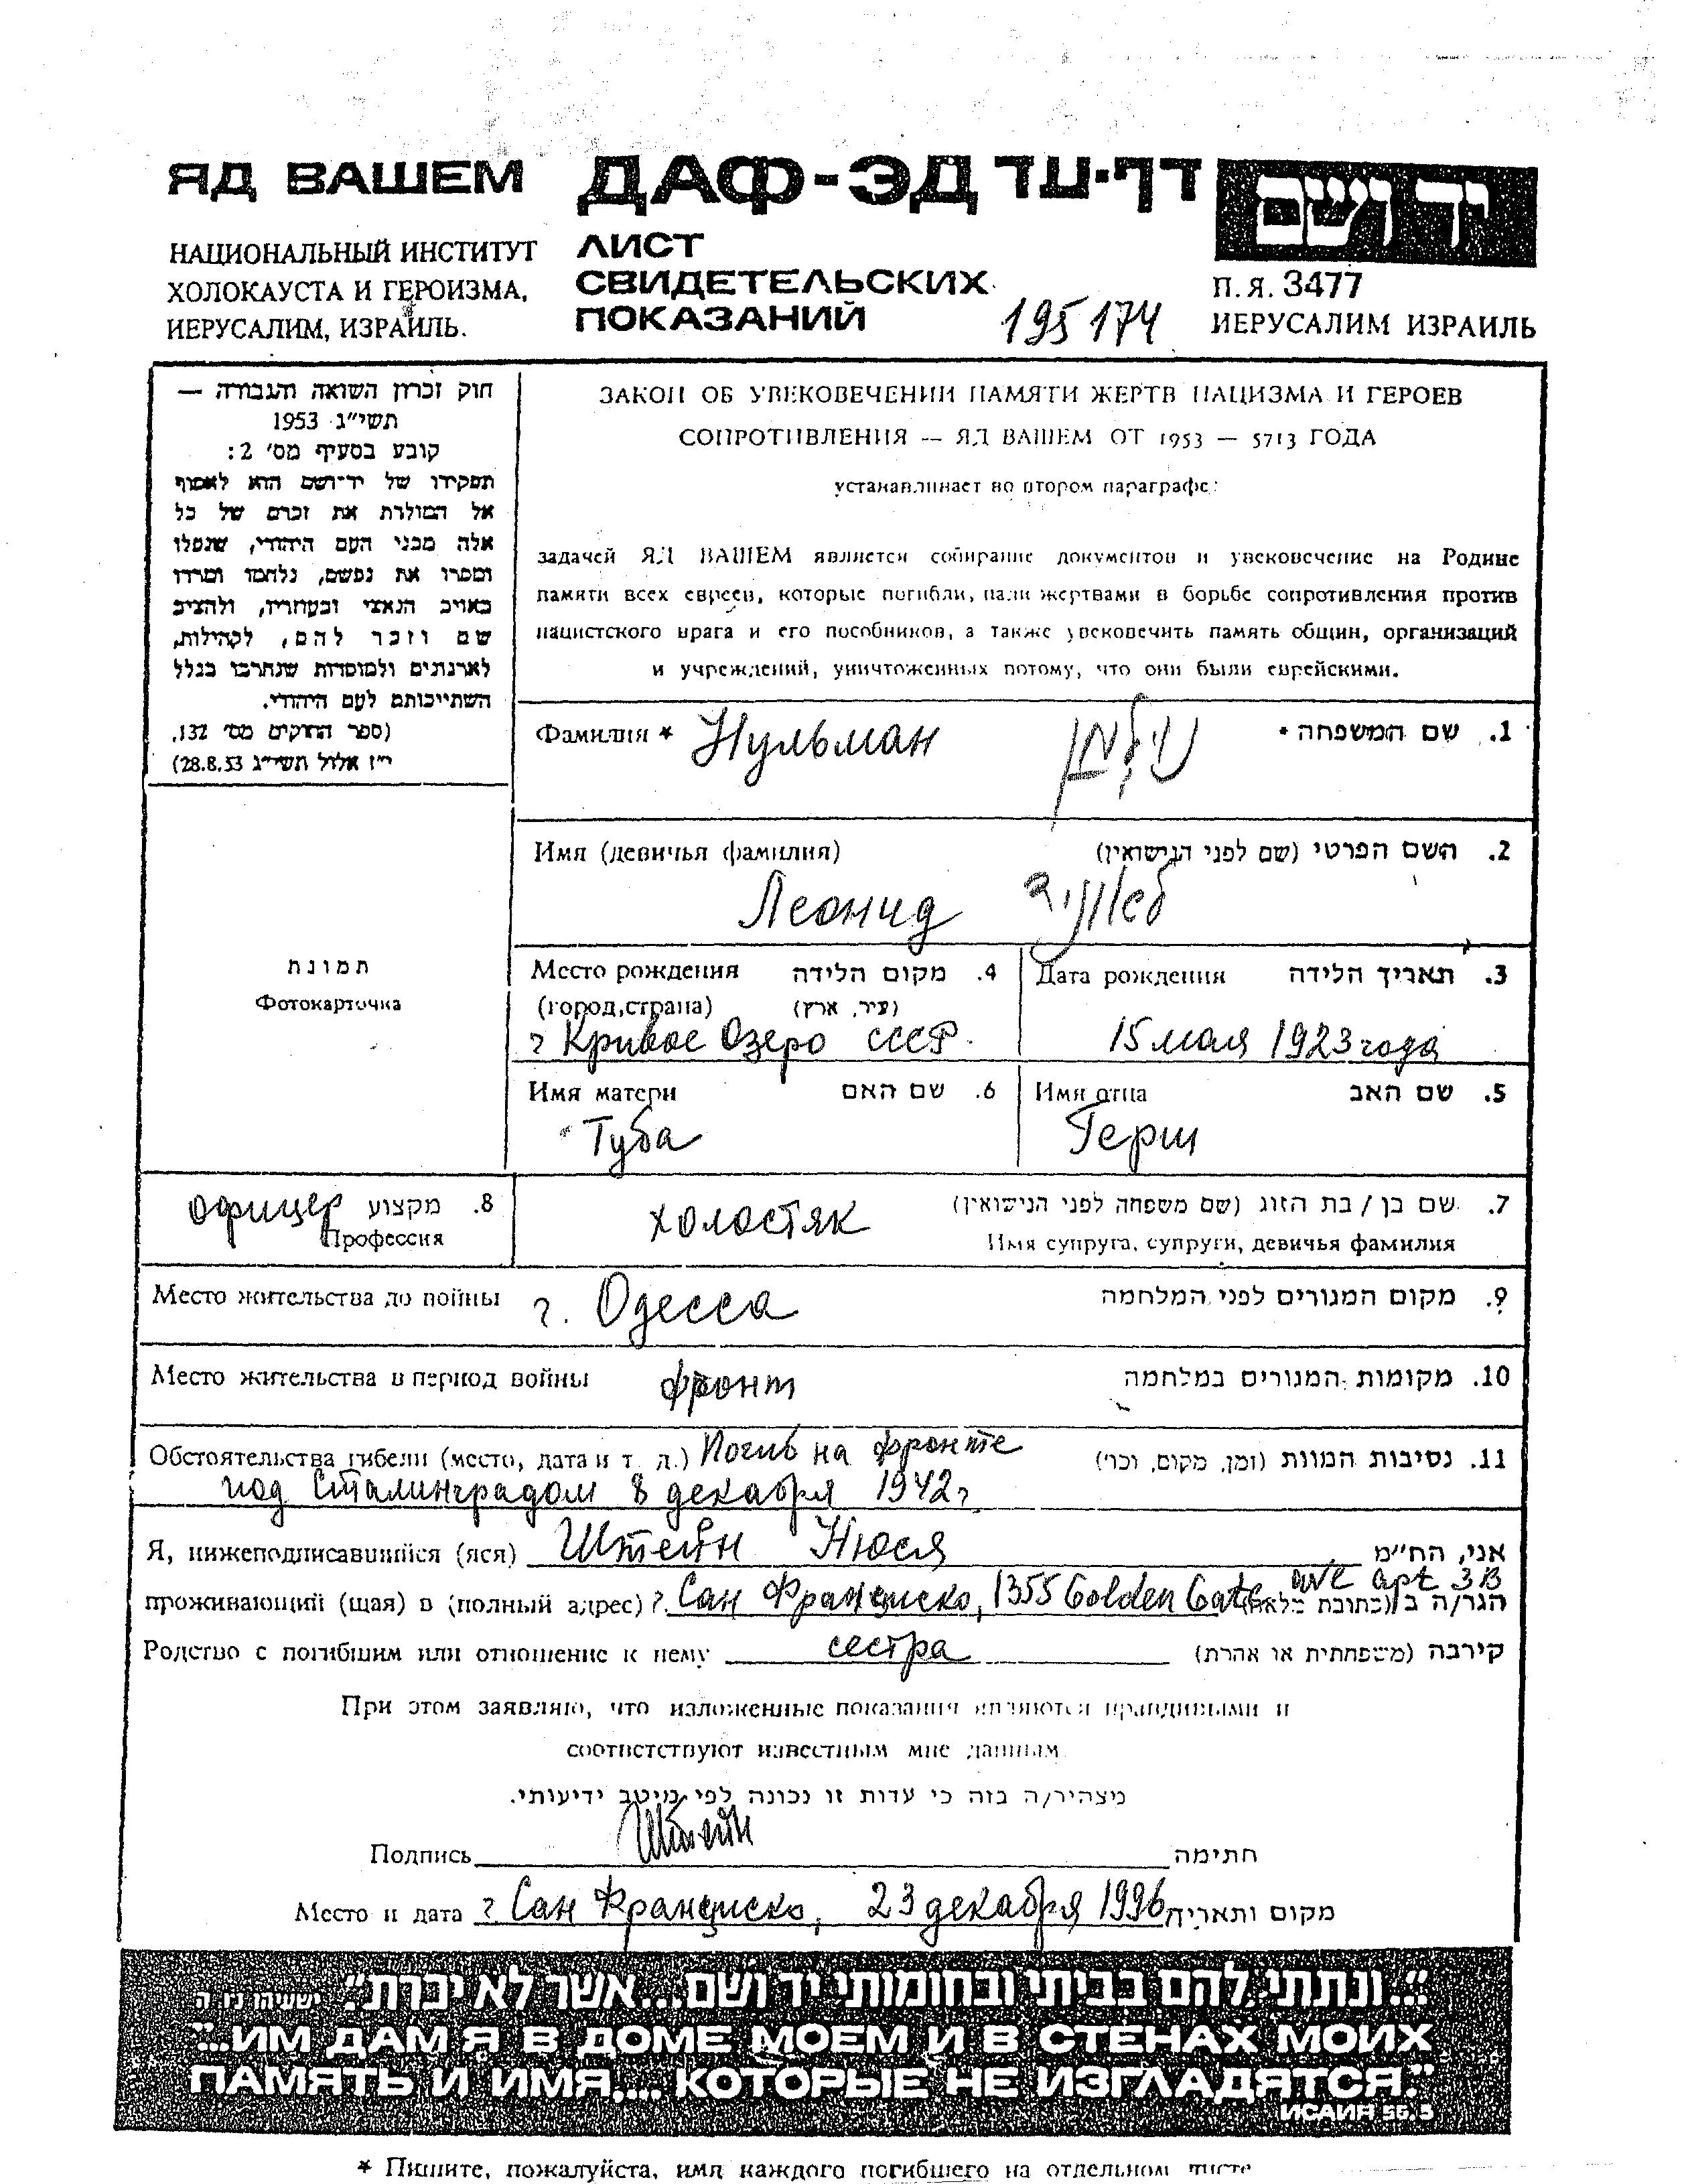 ЯД ВАШЕМ ДАФ-ЭД דף-עד יד ושם
НАЦИОНАЛЬНЫЙ ИНСТИТУТ
ХОЛОКАУСТА И ГЕРОИЗМА,
ИЕРУСАЛИМ, ИЗРАИЛЬ.
ЛИСТ
СВИДЕТЕЛЬСКИХ
ПОКАЗАНИЙ 195174
П.Я. 3477
ИЕРУСАЛИМ ИЗРАИЛЬ
חוק זכרון השואה והגבורה —
תשי"ג 1953
קובע בסעיף מס' 2:
תפקידו של יד־ושם הוא לאסוף
אל המולדת את זכרם של כל
אלה מבני העם היהודי, שנפלו
ומסרו את נפשם, נלחמו ומרדו
באויב הנאצי ובעוזריו, ולהציב
שם וזכר להם, לקהילות,
לארגונים ולמוסדות שנחרבו בגלל
השתייכותם לעם היהודי.
(ספר החוקים מס' 132,
י"ז אלול תשי"ג 28.8.53)
ЗАКОН ОБ УВЕКОВЕЧЕНИИ ПАМЯТИ ЖЕРТВ НАЦИЗМА И ГЕРОЕВ
СОПРОТИВЛЕНИЯ — ЯД ВАШЕМ ОТ 1953 — 5713 ГОДА
устанавливает во втором параграфе:
задачей ЯД ВАШЕМ является собирание документов и увековечение на Родине
памяти всех евреев, которые погибли, пали жертвами в борьбе сопротивления против
нацистского врага и его пособников, а также увековечить память общин, организаций
и учреждений, уничтоженных потому, что они были еврейскими.
Фамилия * Нульман נולמן 1. שם המשפחה *
Имя (девичья фамилия) 2. השם הפרטי (שם לפני הנישואין)
Леонид לאוניד
תמונת
Фотокарточка
Место рождения 4. מקום הלידה
(город,страна) (עיר, ארץ)
г Кривое Озеро СССР.
Дата рождения 3. תאריך הלידה
15 мая 1923 года
Имя матери 6. שם האם
Туба
Имя отца 5. שם האב
Герш
офицер 8. מקצוע
Профессия
холостяк 7. שם בן / בת הזוג (שם משפחה לפני הנישואין)
Имя супруга, супруги, девичья фамилия
Место жительства до войны г. Одесса 9. מקום המגורים לפני המלחמה
Место жительства в период войны фронт 10. מקומות המגורים במלחמה
Обстоятельства гибели (место, дата и т. д.) Погиб на фронте 11. נסיבות המוות (זמן, מקום, וכו')
под Сталинградом 8 декабря 1942 г
Я, нижеподписавшийся (яся) Штейн Нюся אני, הח"מ
проживающий (щая) в (полный адрес) г. Сан Франциско, 1355 Golden Gate ave apt 3B הגר/ה ב (כתובת מלאה)
Родство с погибшим или отношение к нему сестра קירבה (משפחתית או אחרת)
При этом заявляю, что изложенные показания являются правдивыми и
соответствуют известным мне данным
מצהיר/ה בזה כי עדות זו נכונה לפי מיטב ידיעותי.
Подпись Штейн חתימה
Место и дата г. Сан Франциско, 23 декабря 1996 מקום ותאריך
"...ונתתי להם בביתי ובחומותי יד ושם...אשר לא יכרת." ישעיהו נו, ה
"...ИМ ДАМ Я В ДОМЕ МОЕМ И В СТЕНАХ МОИХ
ПАМЯТЬ И ИМЯ.... КОТОРЫЕ НЕ ИЗГЛАДЯТСЯ."
ИСАИЯ 56.5
* Пишите, пожалуйста, имя каждого погибшего на отдельном листе